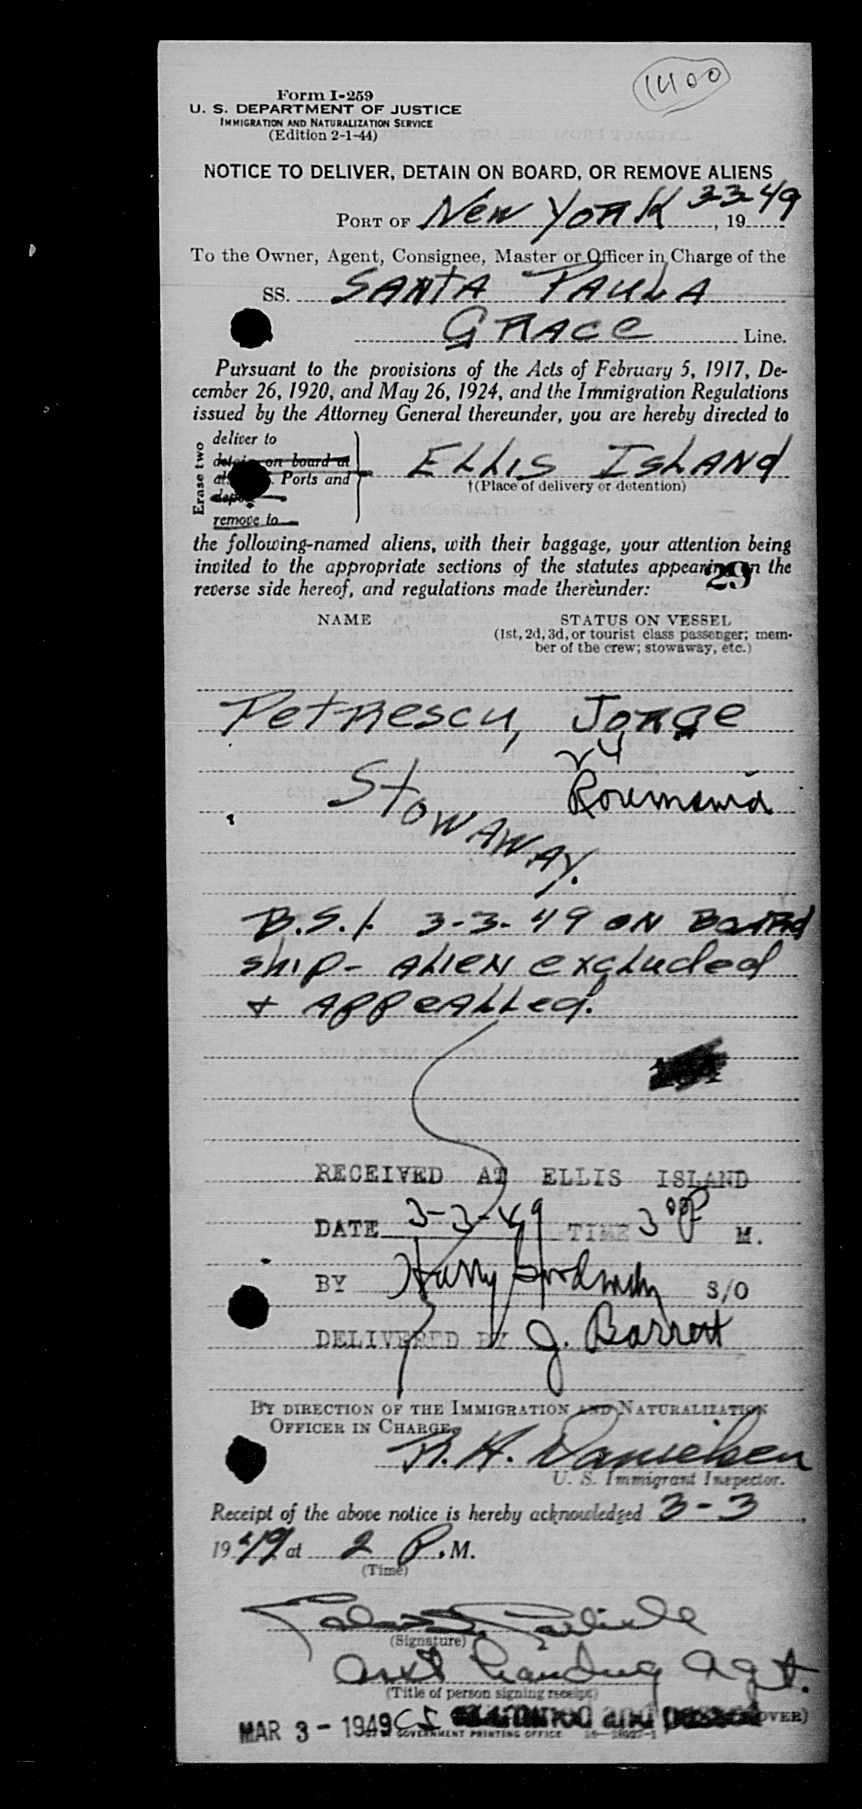 1400
Form I-259
U. S. DEPARTMENT OF JUSTICE
IMMIGRATION AND NATURALIZATION SERVICE
(Edition 2-1-44)
NOTICE TO DELIVER, DETAIN ON BOARD, OR REMOVE ALIENS
PORT OF New York 3-3-49, 19
To the Owner, Agent, Consignee, Master or Officer in Charge of the
SS. SANTA PAULA
GRACE Line.
Pursuant to the provisions of the Acts of February 5, 1917, De-
cember 26, 1920, and May 26, 1924, and the Immigration Regulations
issued by the Attorney General thereunder, you are hereby directed to
Erase two
deliver to
detain on board at
Ports and
remove to
ELLIS ISLAND
†(Place of delivery or detention)
the following-named aliens, with their baggage, your attention being
invited to the appropriate sections of the statutes appearing on the
reverse side hereof, and regulations made thereunder:
29
NAME STATUS ON VESSEL
(1st, 2d, 3d, or tourist class passenger; mem-
ber of the crew; stowaway, etc.)
Petrescu, Jorge
24
Roumania
Stowaway.
B.S.I. 3-3-49 ON BOARD
ship - ALIEN excluded
& APPEALLed.
RECEIVED AT ELLIS ISLAND
DATE 3-3-49 TIME 3 00 P M.
BY Harry S/O
DELIVERED BY J. Barrett
BY DIRECTION OF THE IMMIGRATION AND NATURALIZATION
OFFICER IN CHARGE.
H. Danielsen
U. S. Immigrant Inspector.
Receipt of the above notice is hereby acknowledged 3-3,
1949 at 2 P.M.
(Time)
(Signature)
Asst Landing Agt.
(Title of person signing receipt)
MAR 3 - 1949 examined and passed (OVER)
GOVERNMENT PRINTING OFFICE